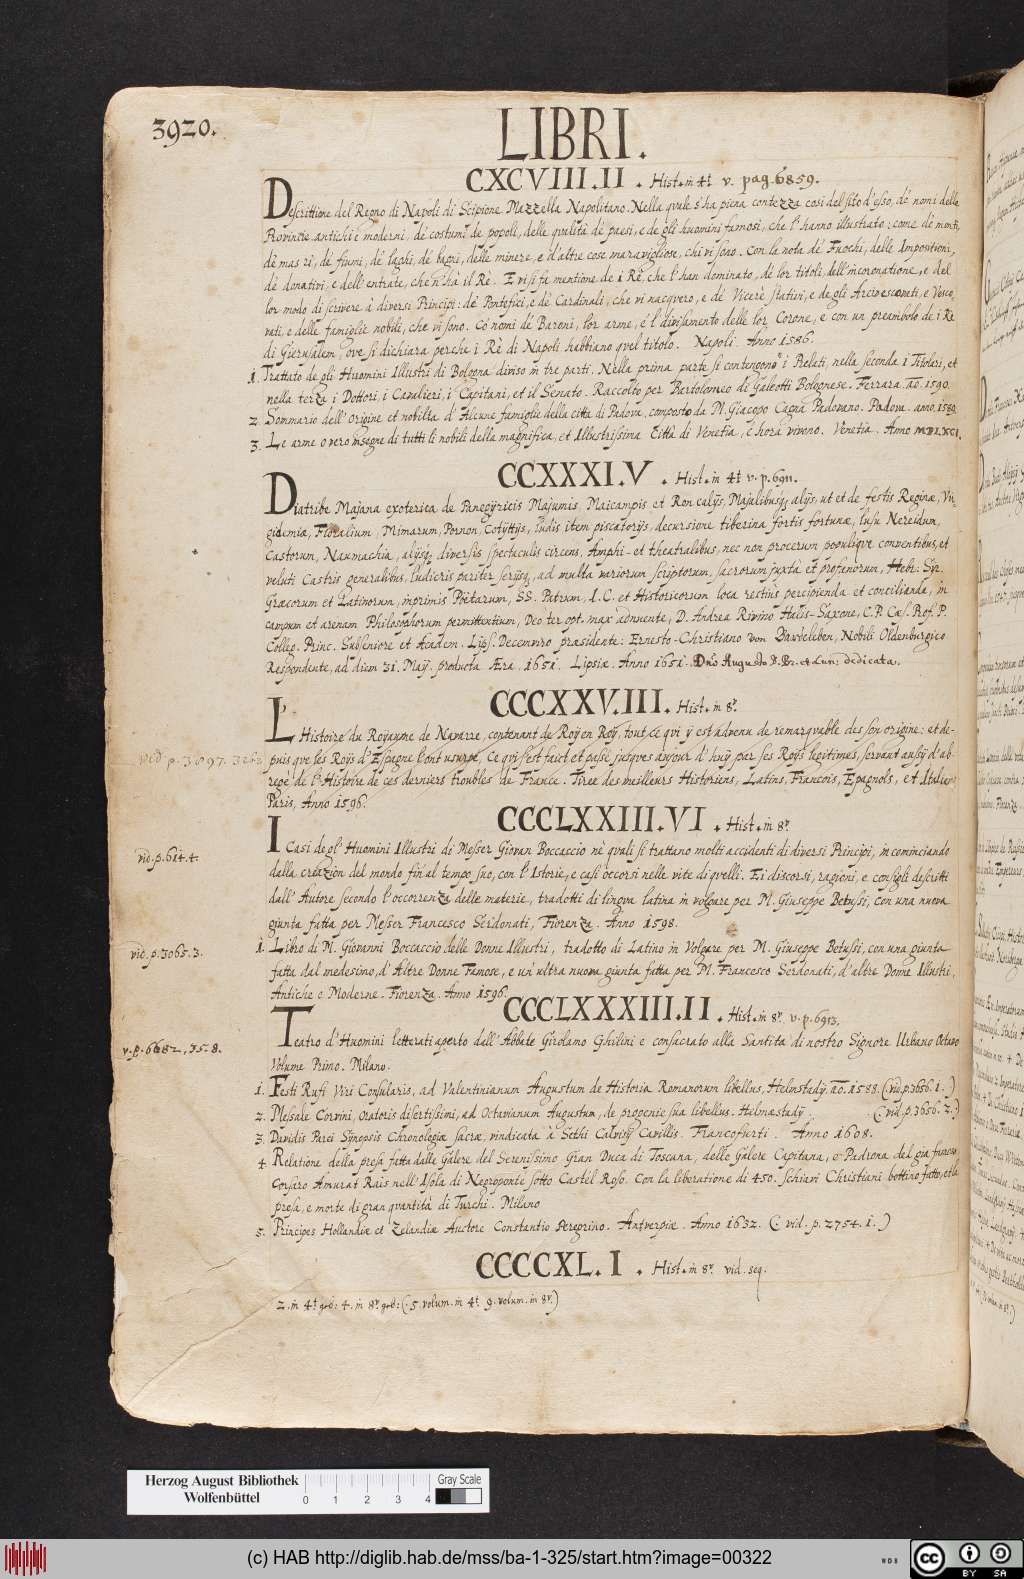 3920.
LIBRI.
CXCVIII.II. Hist. in 4t v. pag. 6859.
Descrittione del Regno di Napoli di Scipione Mazzella Napolitano. Nella quale s'ha piena contezza cosi del sito d'esso, dé nomi delle
Provincie antichi è moderni, dé costumi de popoli, delle qualità dé paesi, e de gli huomini famosi, che l'hanno illustrato: come dé monti,
dé mari, dé fiumi, dé laghi, dé bagni, delle minere, e d'altre cose maravigliose, chi vi sono. Con la nota dé Fuochi, delle Impositioni,
dé donativi, e dell'entrate, che n'hà il Rè. E vi si fa mentione de i Rè, che l'han dominato, dé lor titoli, dell'incoronatione, e del
lor modo di scrivere à diversi Principi: dé Pontefici, e dé Cardinali, che vi nacquero, e dé Vicerè stativi, e de gli Arcivescovati, e Vesco
vati, e delle famiglie nobili, che vi sono. Có nomi dé Baroni, lor arme, è'l divisamento delle lor Corone, e con un preambolo de i Re
di Gierusalem, ove si dichiara perche i Rè di Napoli habbiano quel titolo. Napoli. Anno 1586.
1. Trattato de gli Huomini Illustri di Bologna diviso in tre parti. Nella prima parte si contengono i Prelati, nella seconda i Titolari, et
nella terza i Dottori, i Cavalieri, i Capitani, et il Senato. Raccolto per Bartolomeo di Galeotti Bolognese. Ferrara. ao. 1590.
2. Sommario dell'origine et nobilta d'Alcune famiglie della città di Padova, composto da M. Giacopo Cagna Padovano. Padova. anno. 1589.
3. Le arme overo insegne di tutti li nobili della magnifica, et Illustrissima Città di Venetia, c'hora vivono. Venetia. Anno MDLXCI.
CCXXXI.V. Hist. in 4t v. p. 6911.
Diatribe Majana exoterica de Panegÿricis Majumis Maicampis et Roncalÿs, Majalibusq; alÿs, ut et de festis Reginæ, Vir
gidemiæ, Floralium, Mimarum, Pornon, Cotÿttÿs, ludis item piscatorÿs, decursione tiberina fortis fortunæ, lusu Nereidum,
Castorum, Naumachia, alÿsq; diversis spectaculis circens. Amphi- et theatralibus, nec non procerum populique conventibus, et
veluti Castris generalibus, ludicris pariter serÿsq;, ad multa variorum scriptorum, sacrorum juxta et profanorum, Hebr: Sÿr.
Græcorum et Latinorum, inprimis Pöetarum, SS. Patrum, I.C. et Historicorum loca rectius percipienda et concilianda, in
campum et arenam Philosophorum permittentium, Deo ter opt. max. iennuente, D. Andrea Rivino Halis-Saxone, C.P. Cæs. Prof. P.
Colleg. Princ. Subseniore et Academ. Lips. Decemviro præsidente: Ernesto-Christiano von Bardeleben, Nobili Oldenburgico
Respondente, ad diem 31. Maÿ. producta Æra. 1651. Lipsiæ. Anno 1651. Dno Augusto D. Br. et Lun: dedicata.
CCCXXV.III. Hist. in 8r.
L'Histoire du Royaume de Navarre, contenant de Roy en Roy, tout ce qui y est advenu de remarquable des son origine: et de-
vid p. 3097. 3262
puis que les Roÿs d'Espagne l'ont usurpé, Ce qui s'est faict et passé jusques aujour d'huÿ par ses Roÿs legitimes, servant aussÿ d'ab
regé de l'Histoire de ces derniers troubles de France. Tiree des meilleurs Historiens, Latins, Francois, Epagnols, et Italie
Paris, Anno 1596.
CCCLXXIII.VI. Hist. in 8r.
vid. p. 614. 4.
I Casi de gl'Huomini Illustri di Messer Giovan Boccaccio ne quali si trattano molti accidenti di diversi Principi, incominciando
dalla creazion del mondo fin al tempo suo, con l'Istorie, e casi occorsi nelle vite di quelli. Ei discorsi, ragioni, e consigli descritti
dall'Autore secondo l'occorrenza delle materie, tradotti di lingua latina in volgare per M. Giuseppe Betussi, con una nuova
giunta fatta per Messer Francesco Serdonati, Fiorenza. Anno 1598.
vid. p. 3065. 3.
1. Libro di M. Giovanni Boccaccio delle Donne Illustri, tradotto di Latino in Volgare per M. Giuseppe Betussi, con una giunta
fatta dal medesimo, d'Altre Donne Famose, e un'altra nuova giunta fatta per M. Francesco Serdonati, d'altre Donne Illustri,
Antiche e Moderne. Fiorenza. Anno 1596.
CCCLXXXIII.II. Hist. in 8r. v. p. 6913.
v. p. 6682, 35-8.
Teatro d'Huomini letterati aperto dell'Abbate Girolamo Ghilini e consacrato alla Santita di nostro Signore Urbano Octavo
Volume Primo. Milano.
1. Festi Rufi Viri Consularis, ad Valentinianum Augustum de Historia Romanorum libellus, Helmstadÿ, ao. 1588. (vid. p. 3656. 1.)
2. Messale Corvini, oratoris disertissimi, ad Octavianum Augustum, de progenie sua libellus. Helmæstadÿ. (: vid. p. 3656. 2.)
3. Davidis Parei Sÿnopsis Chronologiæ sacræ, vindicata à Sethi Calvisÿ Cavillis. Francofurti. Anno 1608.
4. Relatione della presa fatta dalle Galere del Serenissimo Gran Duca di Toscana, delle Galere Capitana, e Padrona del gia famoso
Corsaro Amurat Rais nell'Isola di Negroponte sotto Castel Roso. Con la liberatione di 450. Schiavi Christiani bottino fatto, et la
presa, e morte di gran quantità di Turchi. Milano
5. Principes Hollandiæ et Zelandiæ Auctore Constantio Peregrino. Antverpiæ. Anno 1632. (: vid. p. 2754. 1.)
CCCCXL.I. Hist. in 8r. vid. seq.
2. in 4t grō: 4. in 8r grō: (: 5 volum. in 4t. 9. volum. in 8r.)
Herzog August Bibliothek
Wolfenbüttel
0 1 2 3 4
Gray Scale
(c) HAB http://diglib.hab.de/mss/ba-1-325/start.htm?image=00322
WDB
CC BY SA